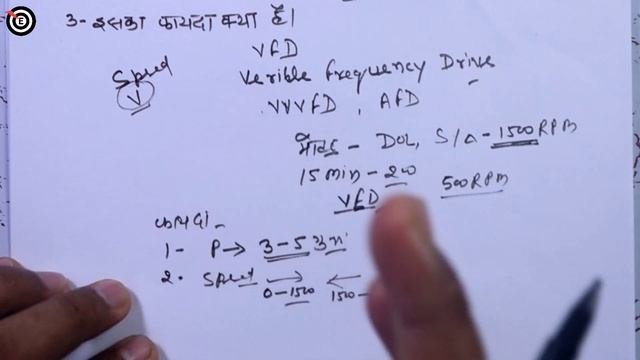 3- इसका फायदा क्या है।
VFD
Speed
V
Verible frequency Drive
VVVFD, AFD
- DOL, S/Δ - 1500 RPM
15 min - 200
500 RPM
VFD
फायदा -
1- P → 3-5
2. Speed → ←
0-1500 1500-
E